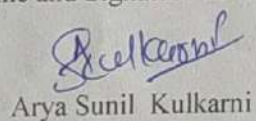 SAKulkarni
Arya Sunil Kulkarni